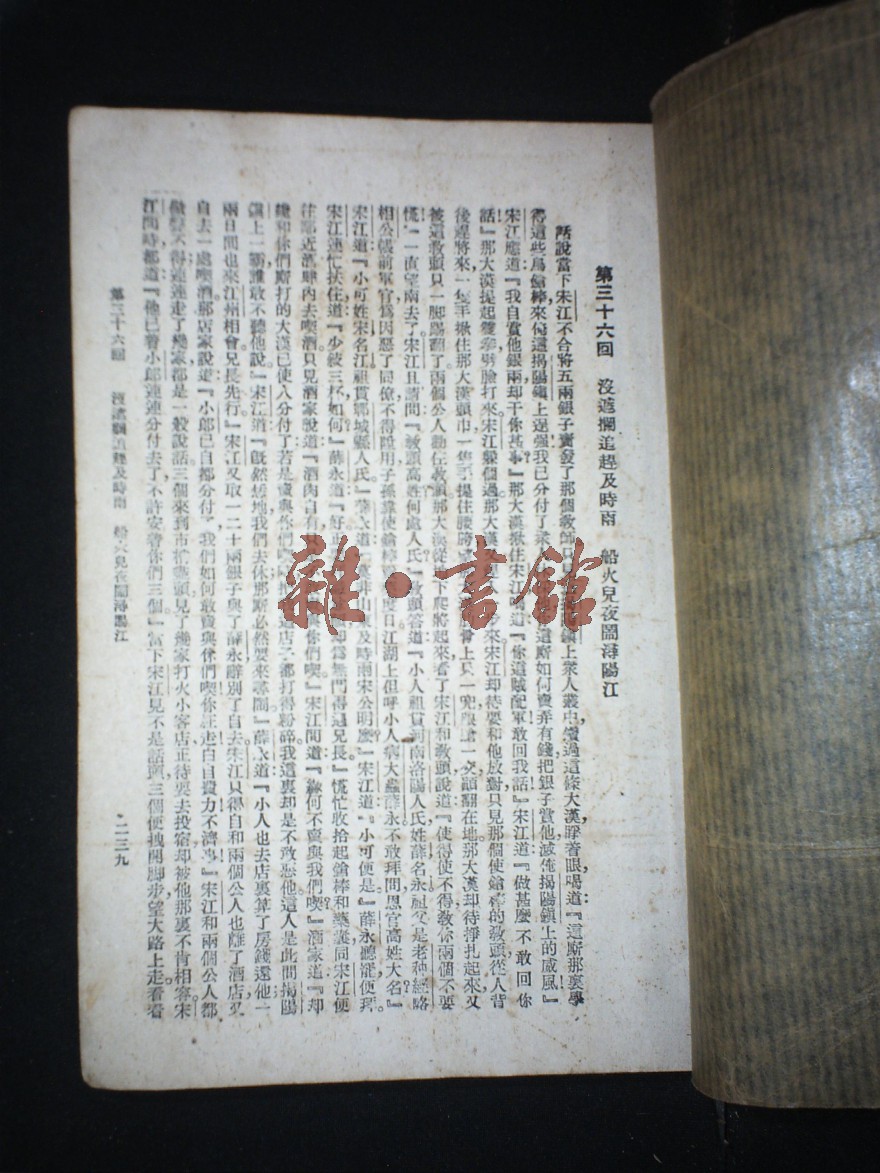 第三十六回 沒遮攔追趕及時雨 船火兒夜鬧潯陽江
話說當下宋江不合將五兩銀子賚發了那個教師只見 鎮上衆人叢中鑽過這條大漢睜着眼喝道『這廝那裏學
得這些鳥鎗棒來俺這揭陽鎮上逞強我已分付了衆 這廝如何賣弄有錢把銀子賞他滅俺揭陽鎮上的威風』
宋江應道『我自賞他銀兩却干你甚事』那大漢揪住宋江喝道『你這賊配軍敢回我話』宋江道『做甚麼不敢回你
話』那大漢提起雙拳劈臉打來宋江躱個過那大漢 步來宋江却待要和他放對只見那個使鎗棒的教頭從人背
後趕將來一隻手揪住那大漢頭巾一隻手提住腰胯 骨上只一兜踉蹌一交顚翻在地那大漢却待掙扎起來又
被這教頭只一脚踢翻了兩個公人勸住教頭那大漢從地下爬將起來看了宋江和教頭說道『使得使不得教你兩個不要
慌』一直望南去了宋江且請問『教頭高姓何處人氏』教頭答道『小人祖貫河南洛陽人氏姓薛名永祖父是老种經略
相公帳前軍官爲因惡了同僚不得陞用子孫靠使鎗棒 度日江湖上但呼小人病大蟲薛永不敢拜問恩官高姓大名』
宋江道『小可姓宋名江祖貫鄆城縣人氏』薛永道『莫非山東及時雨宋公明麼』宋江道『小可便是』薛永聽罷便拜
宋江連忙扶住道『少敍三杯如何』薛永道『好 却爲無門得遇兄長』慌忙收拾起鎗棒和藥囊同宋江便
往鄰近酒肆內去喫酒只見酒家說道『酒肉自有只 與你們喫』宋江問道『緣何不賣與我們喫』酒家道『却
纔和你們廝打的大漢已使人分付了若是賣與你們喫 店子都打得粉碎我這裏却是不敢惡他這人是此間揭陽
鎮上一霸誰敢不聽他說』宋江道『旣然恁地我們去休那廝必然要來尋鬧』薛永道『小人也去店裏算了房錢還他一
兩日間也來江州相會兄長先行』宋江又取一二十兩銀子與了薛永辭別了自去宋江只得自和兩個公人也離了酒店又
自去一處喫酒那店家說道『小郎已自都分付了我們如何敢賣與你們喫你枉走白自費力不濟事』宋江和兩個公人都
做聲不得連連走了幾家都是一般說話三個來到市梢盡頭見了幾家打火小客店正待要去投宿却被他那裏不肯相容宋
江問時都道『他已着小郎連連分付去了不許安着你們三個』當下宋江見不是話頭三個便拽開脚步望大路上走看看
第三十六回 沒遮攔追趕及時雨 船火兒夜鬧潯陽江 二三九
雜·書館